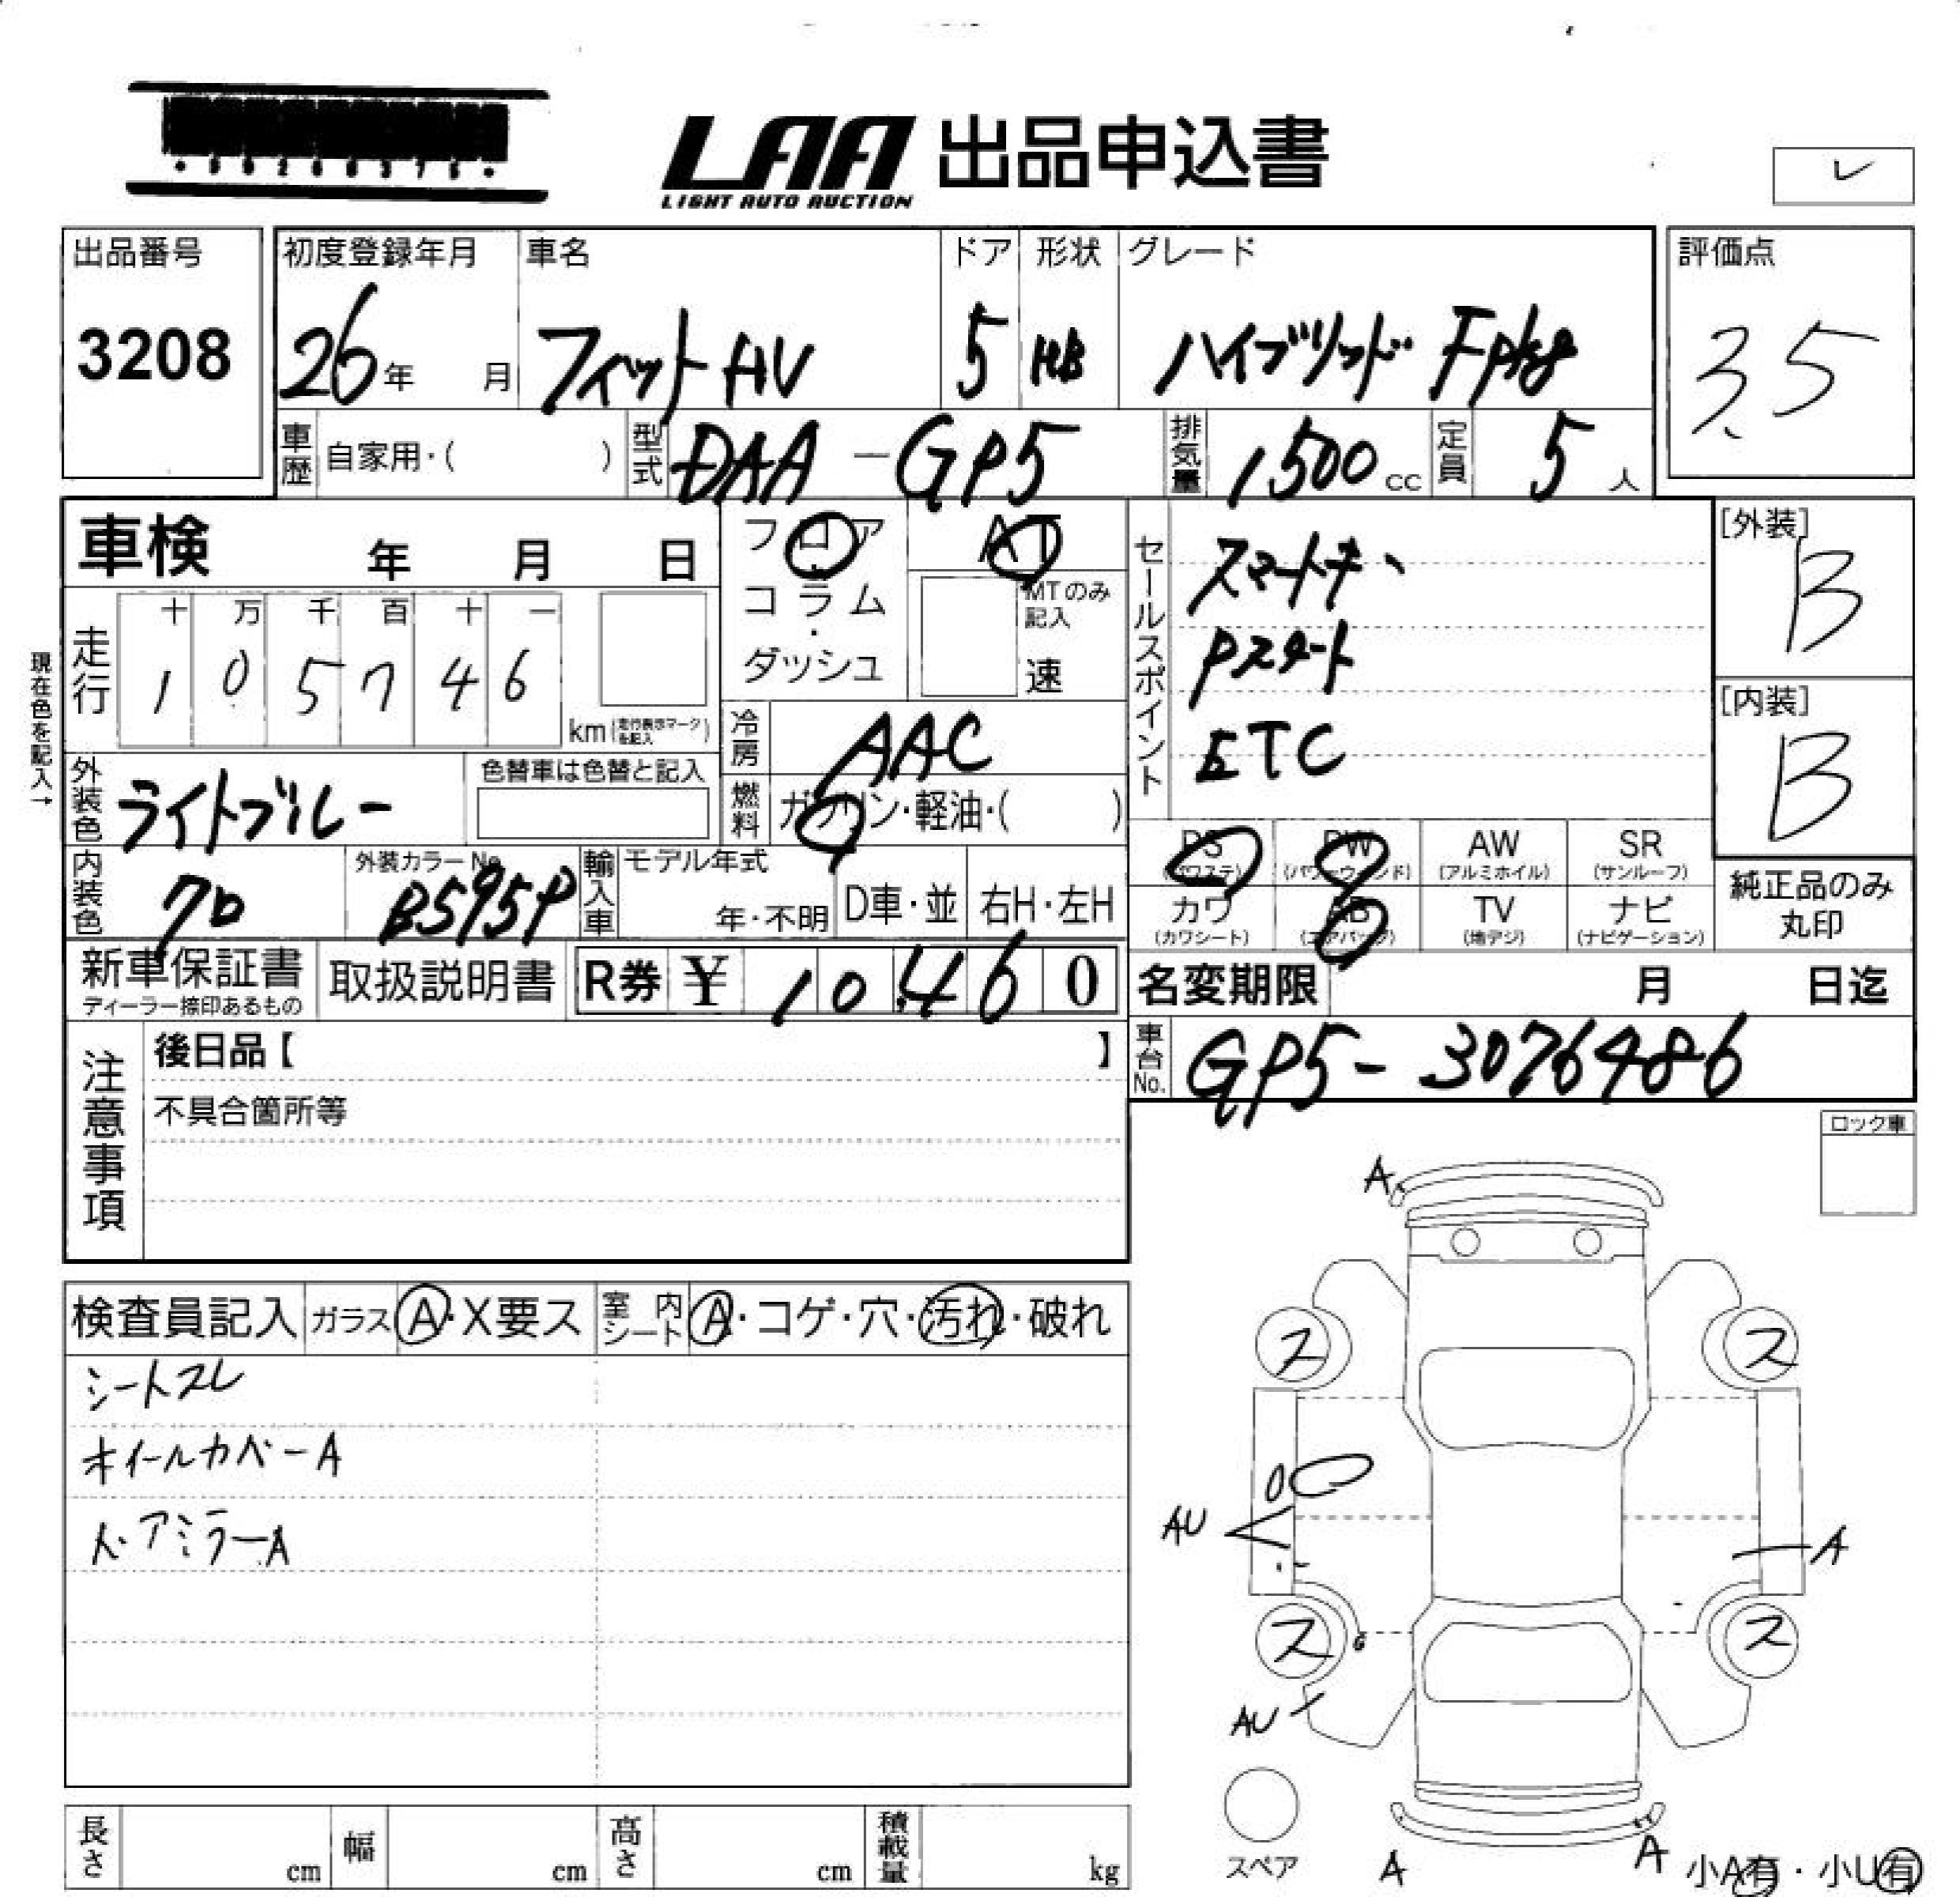 LAA 出品申込書
LIGHT AUTO AUCTION
レ
出品番号
3208
初度登録年月
26年 月
車名
フィットHV
ドア
5
形状
HB
グレード
ハイブリッド Fpkg
評価点
3.5
車歴 自家用・( )
型式 DAA-GP5
排気量 1500cc
定員 5人
車検 年 月 日
フロア
・
コラム
・
ダッシュ
AT
MTのみ記入
速
セールスポイント
スマートキー、
Pスタート
ETC
[外装]
B
[内装]
B
現在色を記入→
走行
十 万 千 百 十 一
1 0 5 7 4 6
km(走行表示マークを記入)
冷房 AAC
外装色 ライトブルー
色替車は色替と記入
燃料 ガソリン・軽油・( )
PS (パワステ)
PW (パワーウィンド)
AW (アルミホイル)
SR (サンルーフ)
カワ (カワシート)
AB (エアバッグ)
TV (地デジ)
ナビ (ナビゲーション)
純正品のみ
丸印
内装色 クロ
外装カラーNo.
B595P
輸入車
モデル年式
年・不明
D車・並
右H・左H
新車保証書
ディーラー捺印あるもの
取扱説明書
R券 ¥ 10,460
名変期限 月 日迄
車台No. GP5-3076486
注意事項
後日品【 】
不具合箇所等
ロック車
検査員記入 ガラス A・X要ス 室内シート A・コゲ・穴・汚れ・破れ
シートスレ
ホイールカバーA
ドアミラーA
A
ス ス
AU
A
ス ス
AU
スペア
A A
小A有・小U有
長さ cm 幅 cm 高さ cm 積載量 kg